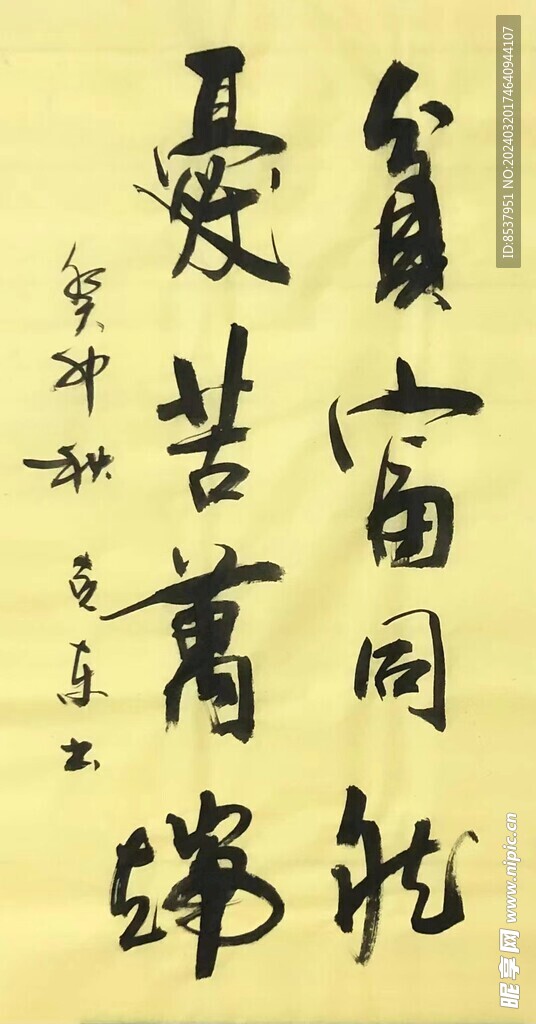 貧富同然
憂苦萬端
癸卯秋 克東书
ID:8537951 NO:20240320174640944107
昵享网 www.nipic.cn